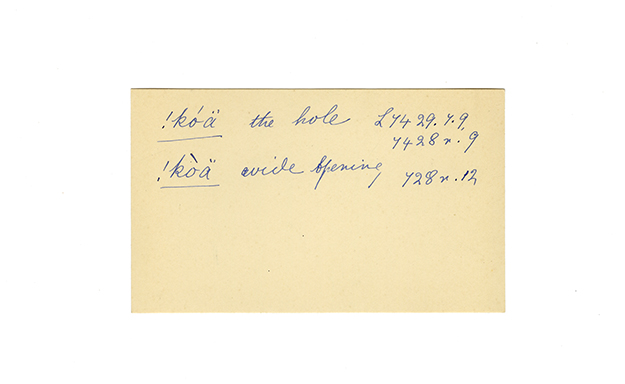 !kóä the hole L7429.7.9,
7428 r. 9
!kòä wide opening 728 r. 12